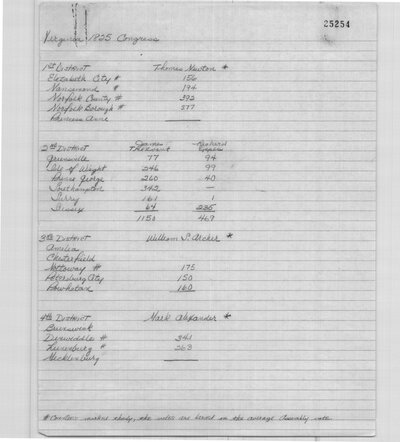 25254
Virginia 1825 Congress
1st District Thomas Newton *
Elizabeth City # 156
Nansemond # 194
Norfolk County # 392
Norfolk Borough # 377
Princess Anne
2nd District James Trezvant Richard Eppes
Greensville 77 94
Isle of Wight 246 99
Prince George 260 40
Southampton 342 —
Surry 161 1
Sussex 64 235
1150 469
3rd District William S. Archer *
Amelia
Chesterfield
Nottoway # 175
Petersburg City 150
Powhatan 160
4th District Mark Alexander *
Brunswick
Dinwiddie # 341
Lunenburg # 263
Mecklenburg
# Counties marked thusly, the votes are based on the average Assembly vote